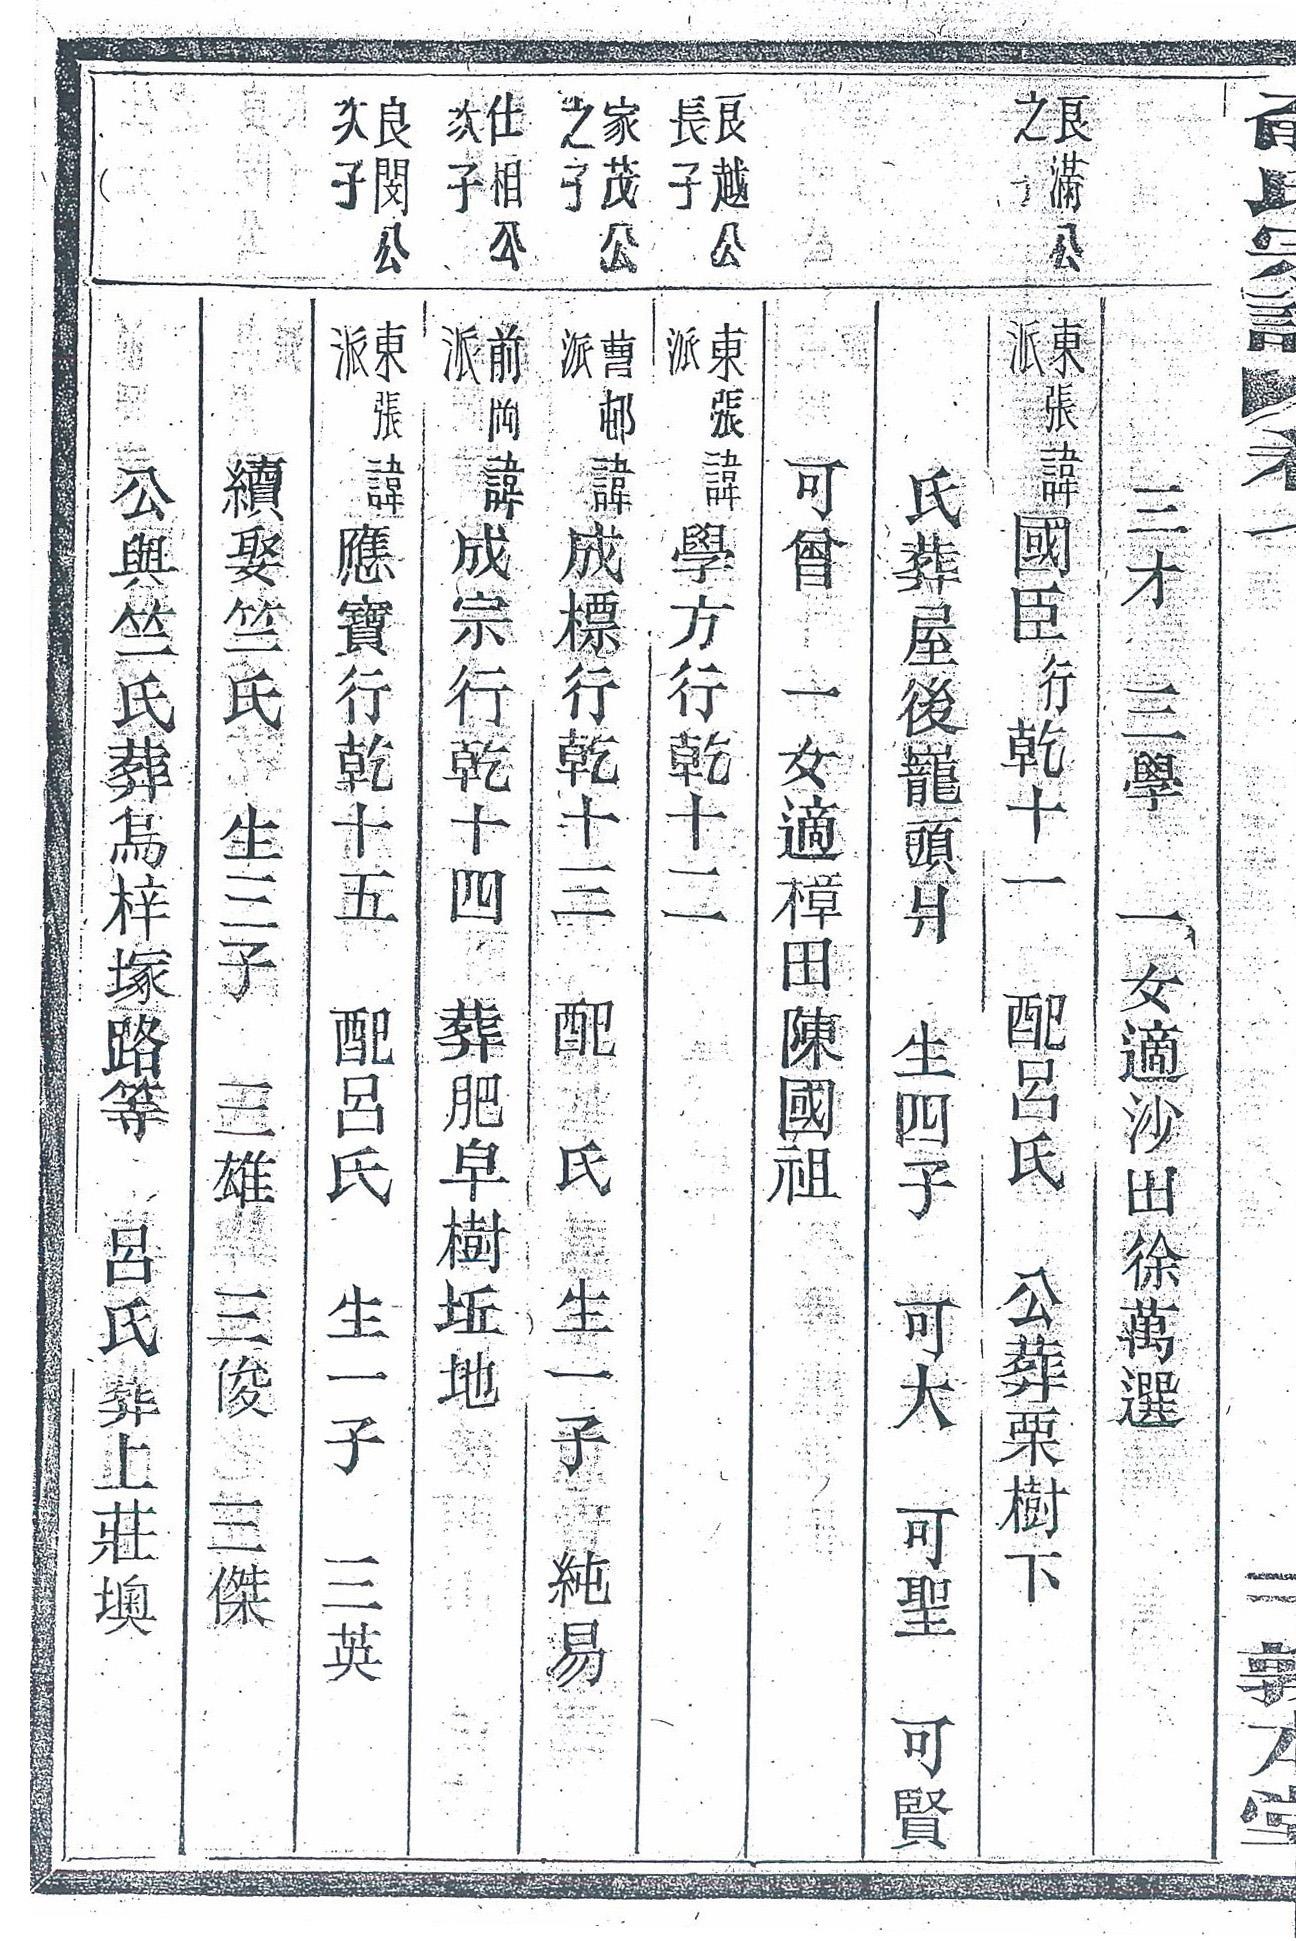 三才 三學 一女適沙出徐萬選
良滿公之子
東張派 諱國臣行乾十一 配呂氏 公葬栗樹下
氏葬屋後羅頭爿 生四子 可大 可聖 可賢
可曾 一女適樟田陳國祖
良越公長子
東張派 諱學方行乾十二
家茂公之子
曹邨派 諱成標行乾十三 配 氏 生一子 純易
仕相公次子
前岡派 諱成宗行乾十四 葬肥皁樹坵地
良閔公次子
東張派 諱應寶行乾十五 配呂氏 生一子 三英
續娶竺氏 生三子 三雄 三俊 三傑
公與竺氏葬烏梓塚路等 呂氏葬上莊墺